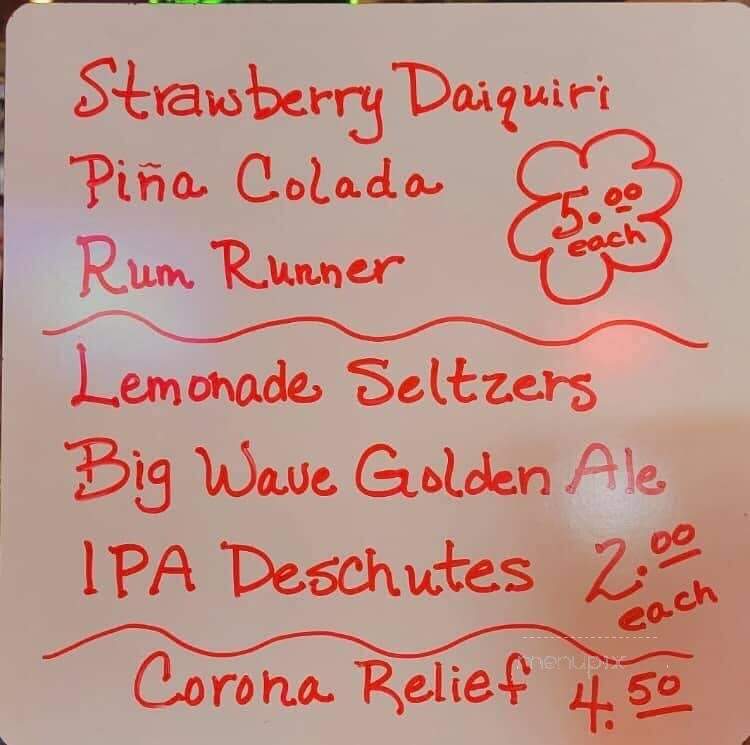 Strawberry Daiquiri
Piña Colada
5.00
each
Rum Runner
Lemonade Seltzers
Big Wave Golden Ale
IPA Deschutes 2.00
each
menupix
Corona Relief 4.50